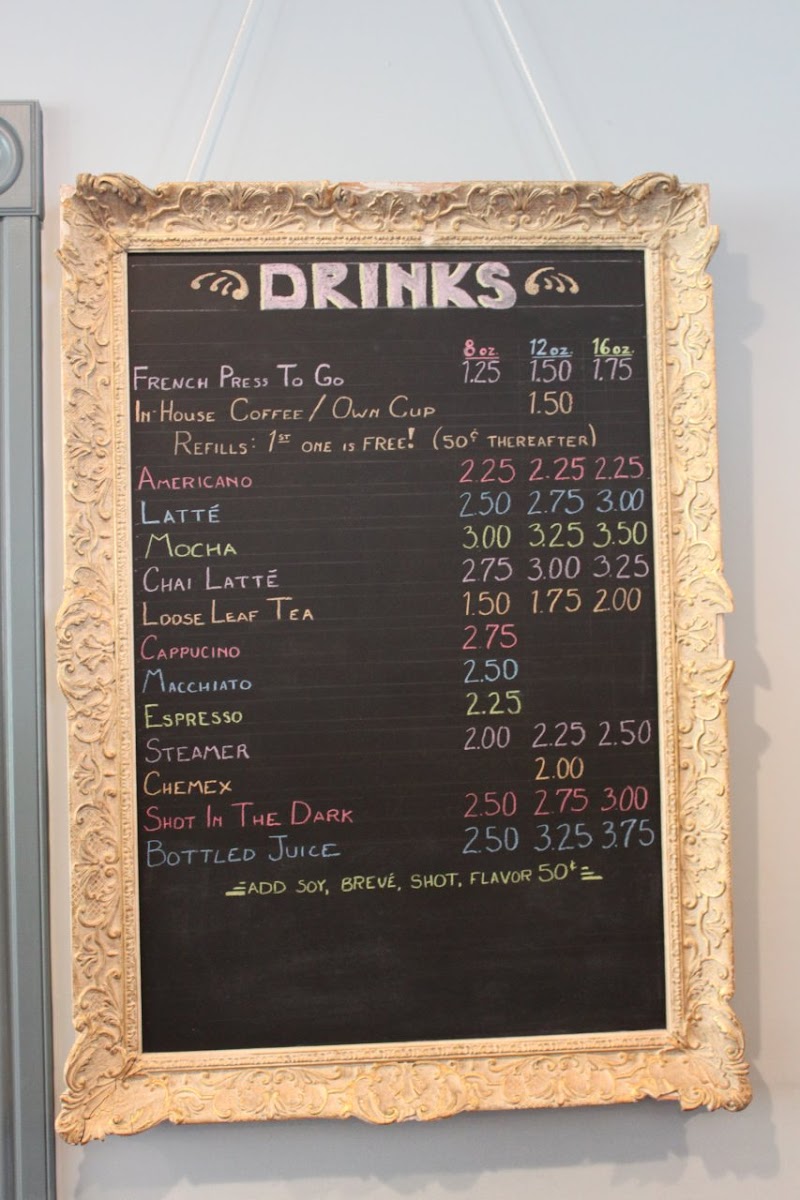 DRINKS
8 oz. 12 oz. 16 oz.
FRENCH PRESS TO GO 1.25 1.50 1.75
IN-HOUSE COFFEE / OWN CUP 1.50
REFILLS: 1ST ONE IS FREE! (50¢ THEREAFTER)
AMERICANO 2.25 2.25 2.25
LATTÉ 2.50 2.75 3.00
MOCHA 3.00 3.25 3.50
CHAI LATTÉ 2.75 3.00 3.25
LOOSE LEAF TEA 1.50 1.75 2.00
CAPPUCINO 2.75
MACCHIATO 2.50
ESPRESSO 2.25
STEAMER 2.00 2.25 2.50
CHEMEX 2.00
SHOT IN THE DARK 2.50 2.75 3.00
BOTTLED JUICE 2.50 3.25 3.75
ADD SOY, BREVÉ, SHOT, FLAVOR 50¢